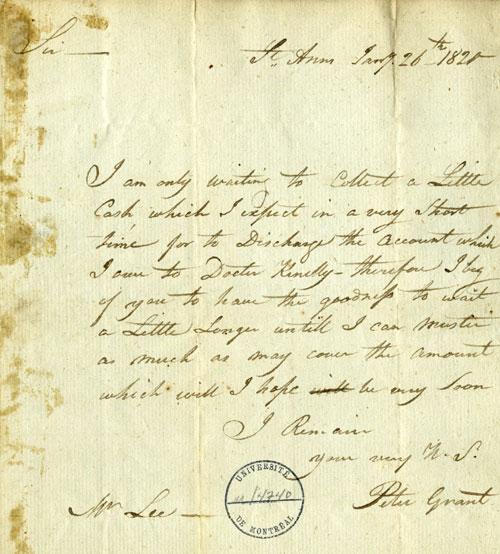 Sir — St. Ann Jany. 26th 1820
I am only waiting to Collect a Little
Cash, which I expect in a very Short
time for to Discharge the Account which
I owe to Doctor Kenelly – therefore I beg
of you to have the goodness to wait
a Little Longer untill I can muster
as much as may cover the amount
which will I hope will be very Soon
I Remain
your very H. S.
Mr Lee — Peter Grant
UNIVERSITÉ
DE MONTRÉAL